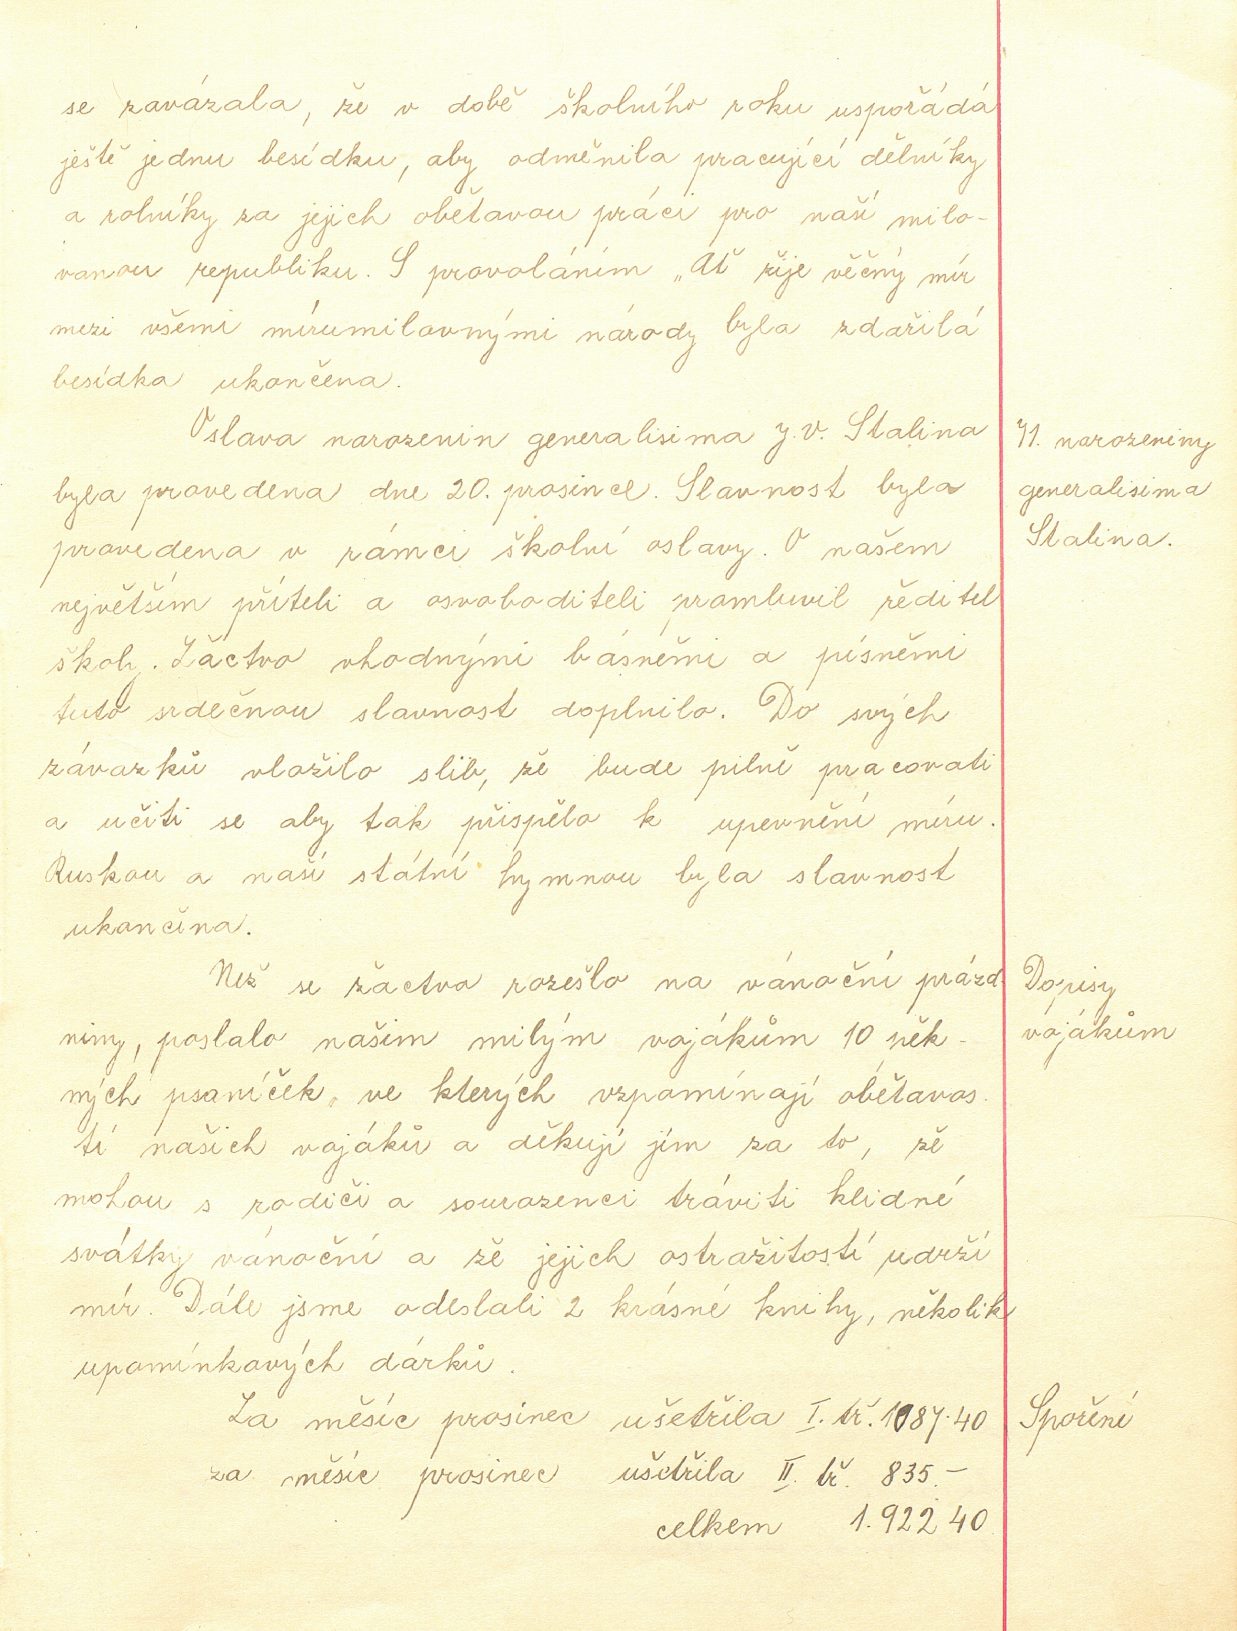 se zavázala, že v době školního roku uspořádá
ještě jednu besídku, aby odměnila pracující dělníky
a rolníky za jejich obětavou práci pro naší milo-
vanou republiku. S provoláním „Ať žije věčný mír
mezi všemi mírumilovnými národy byla zdařilá
besídka ukončena.
Oslava narozenin generalisima J. V. Stalina
71. narozeniny
byla provedena dne 20. prosince. Slavnost byla
generalisima
provedena v rámci školní oslavy. O našem
Stalina.
největším příteli a osvoboditeli promluvil ředitel
školy. Žáctvo vhodnými básněmi a písněmi
tuto srdečnou slavnost doplnilo. Do svých
závazků vložilo slib, že bude pilně pracovati
a učiti se aby tak přispělo k upevnění míru.
Ruskou a naší státní hymnou byla slavnost
ukončena.
Než se žactvo rozešlo na vánoční prázd
Dopisy
niny, poslalo našim milým vojákům 10 pěk-
vojákům
ných psaníček, ve kterých vzpomínají obětavos-
tí našich vojáků a děkují jim za to, že
mohou s rodiči a sourozenci tráviti klidné
svátky vánoční a že jejich ostražitostí udrží
mír. Dále jsme odeslali 2 krásné knihy, několik
upomínkových dárků.
Za měsíc prosinec ušetřila I. tř. 1087.40
Spoření
za měsíc prosinec ušetřila II. tř. 835.–
celkem 1.922 40